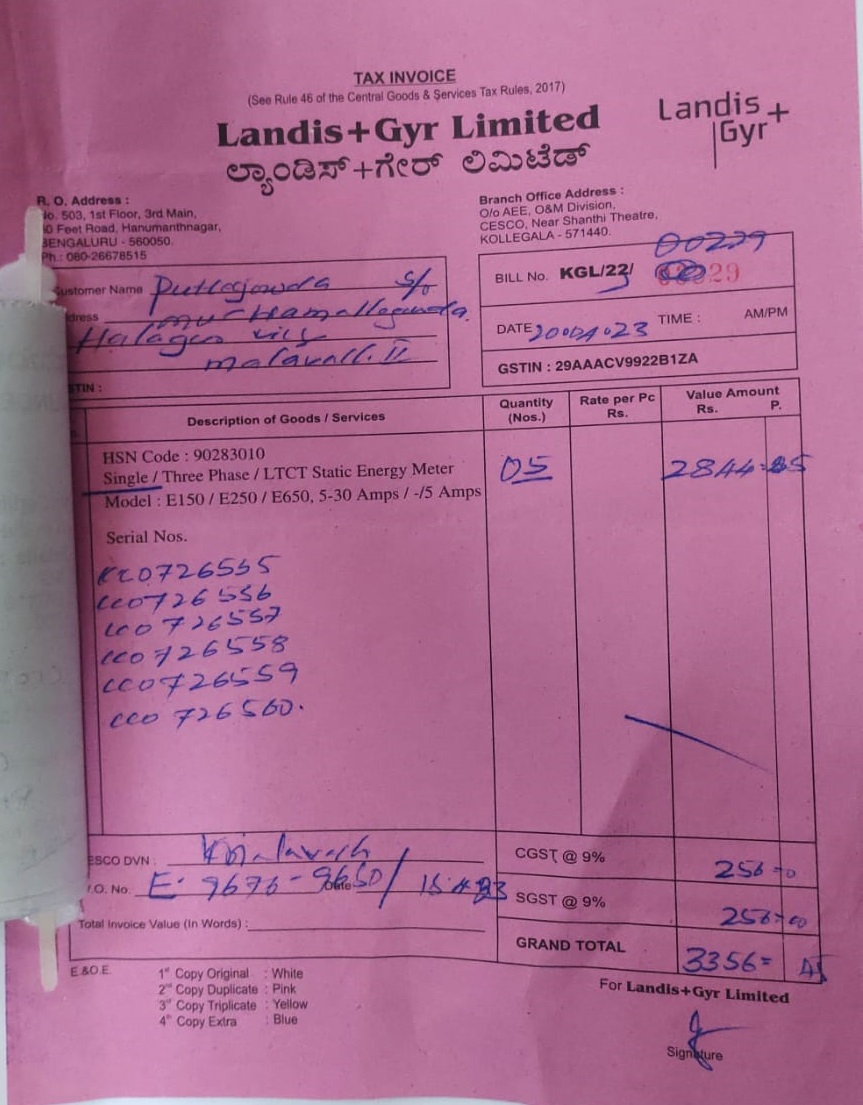 TAX INVOICE
(See Rule 46 of the Central Goods & Services Tax Rules, 2017)
Landis+Gyr Limited
Landis+
Gyr
ಲ್ಯಾಂಡಿಸ್+ಗೇರ್ ಲಿಮಿಟೆಡ್
R. O. Address :
No. 503, 1st Floor, 3rd Main,
0 Feet Road, Hanumanthnagar,
BENGALURU - 560050.
Ph.: 080-26678515
Branch Office Address :
O/o AEE, O&M Division,
CESCO, Near Shanthi Theatre,
KOLLEGALA - 571440.
00229
BILL No. KGL/23/
DATE 20 04 023 TIME : AM/PM
GSTIN : 29AAACV9922B1ZA
Customer Name Puttegowda S/o
dress
Halagur
STIN :
Description of Goods / Services
Quantity (Nos.)
Rate per Pc Rs.
Value Amount Rs. P.
HSN Code : 90283010
Single / Three Phase / LTCT Static Energy Meter
Model : E150 / E250 / E650, 5-30 Amps / -/5 Amps
05
2844=
Serial Nos.
0726555
cc0726556
cc0726557
cc0726558
cc0726559
cc0726560.
ESCO DVN :
.O. No. E. 9676-9680 / Date
Total Invoice Value (In Words) :
CGST @ 9% 256=0
SGST @ 9% 256=00
GRAND TOTAL 3356= 45
E.&O.E.
1st Copy Original : White
2nd Copy Duplicate : Pink
3rd Copy Triplicate : Yellow
4th Copy Extra : Blue
For Landis+Gyr Limited
Signature